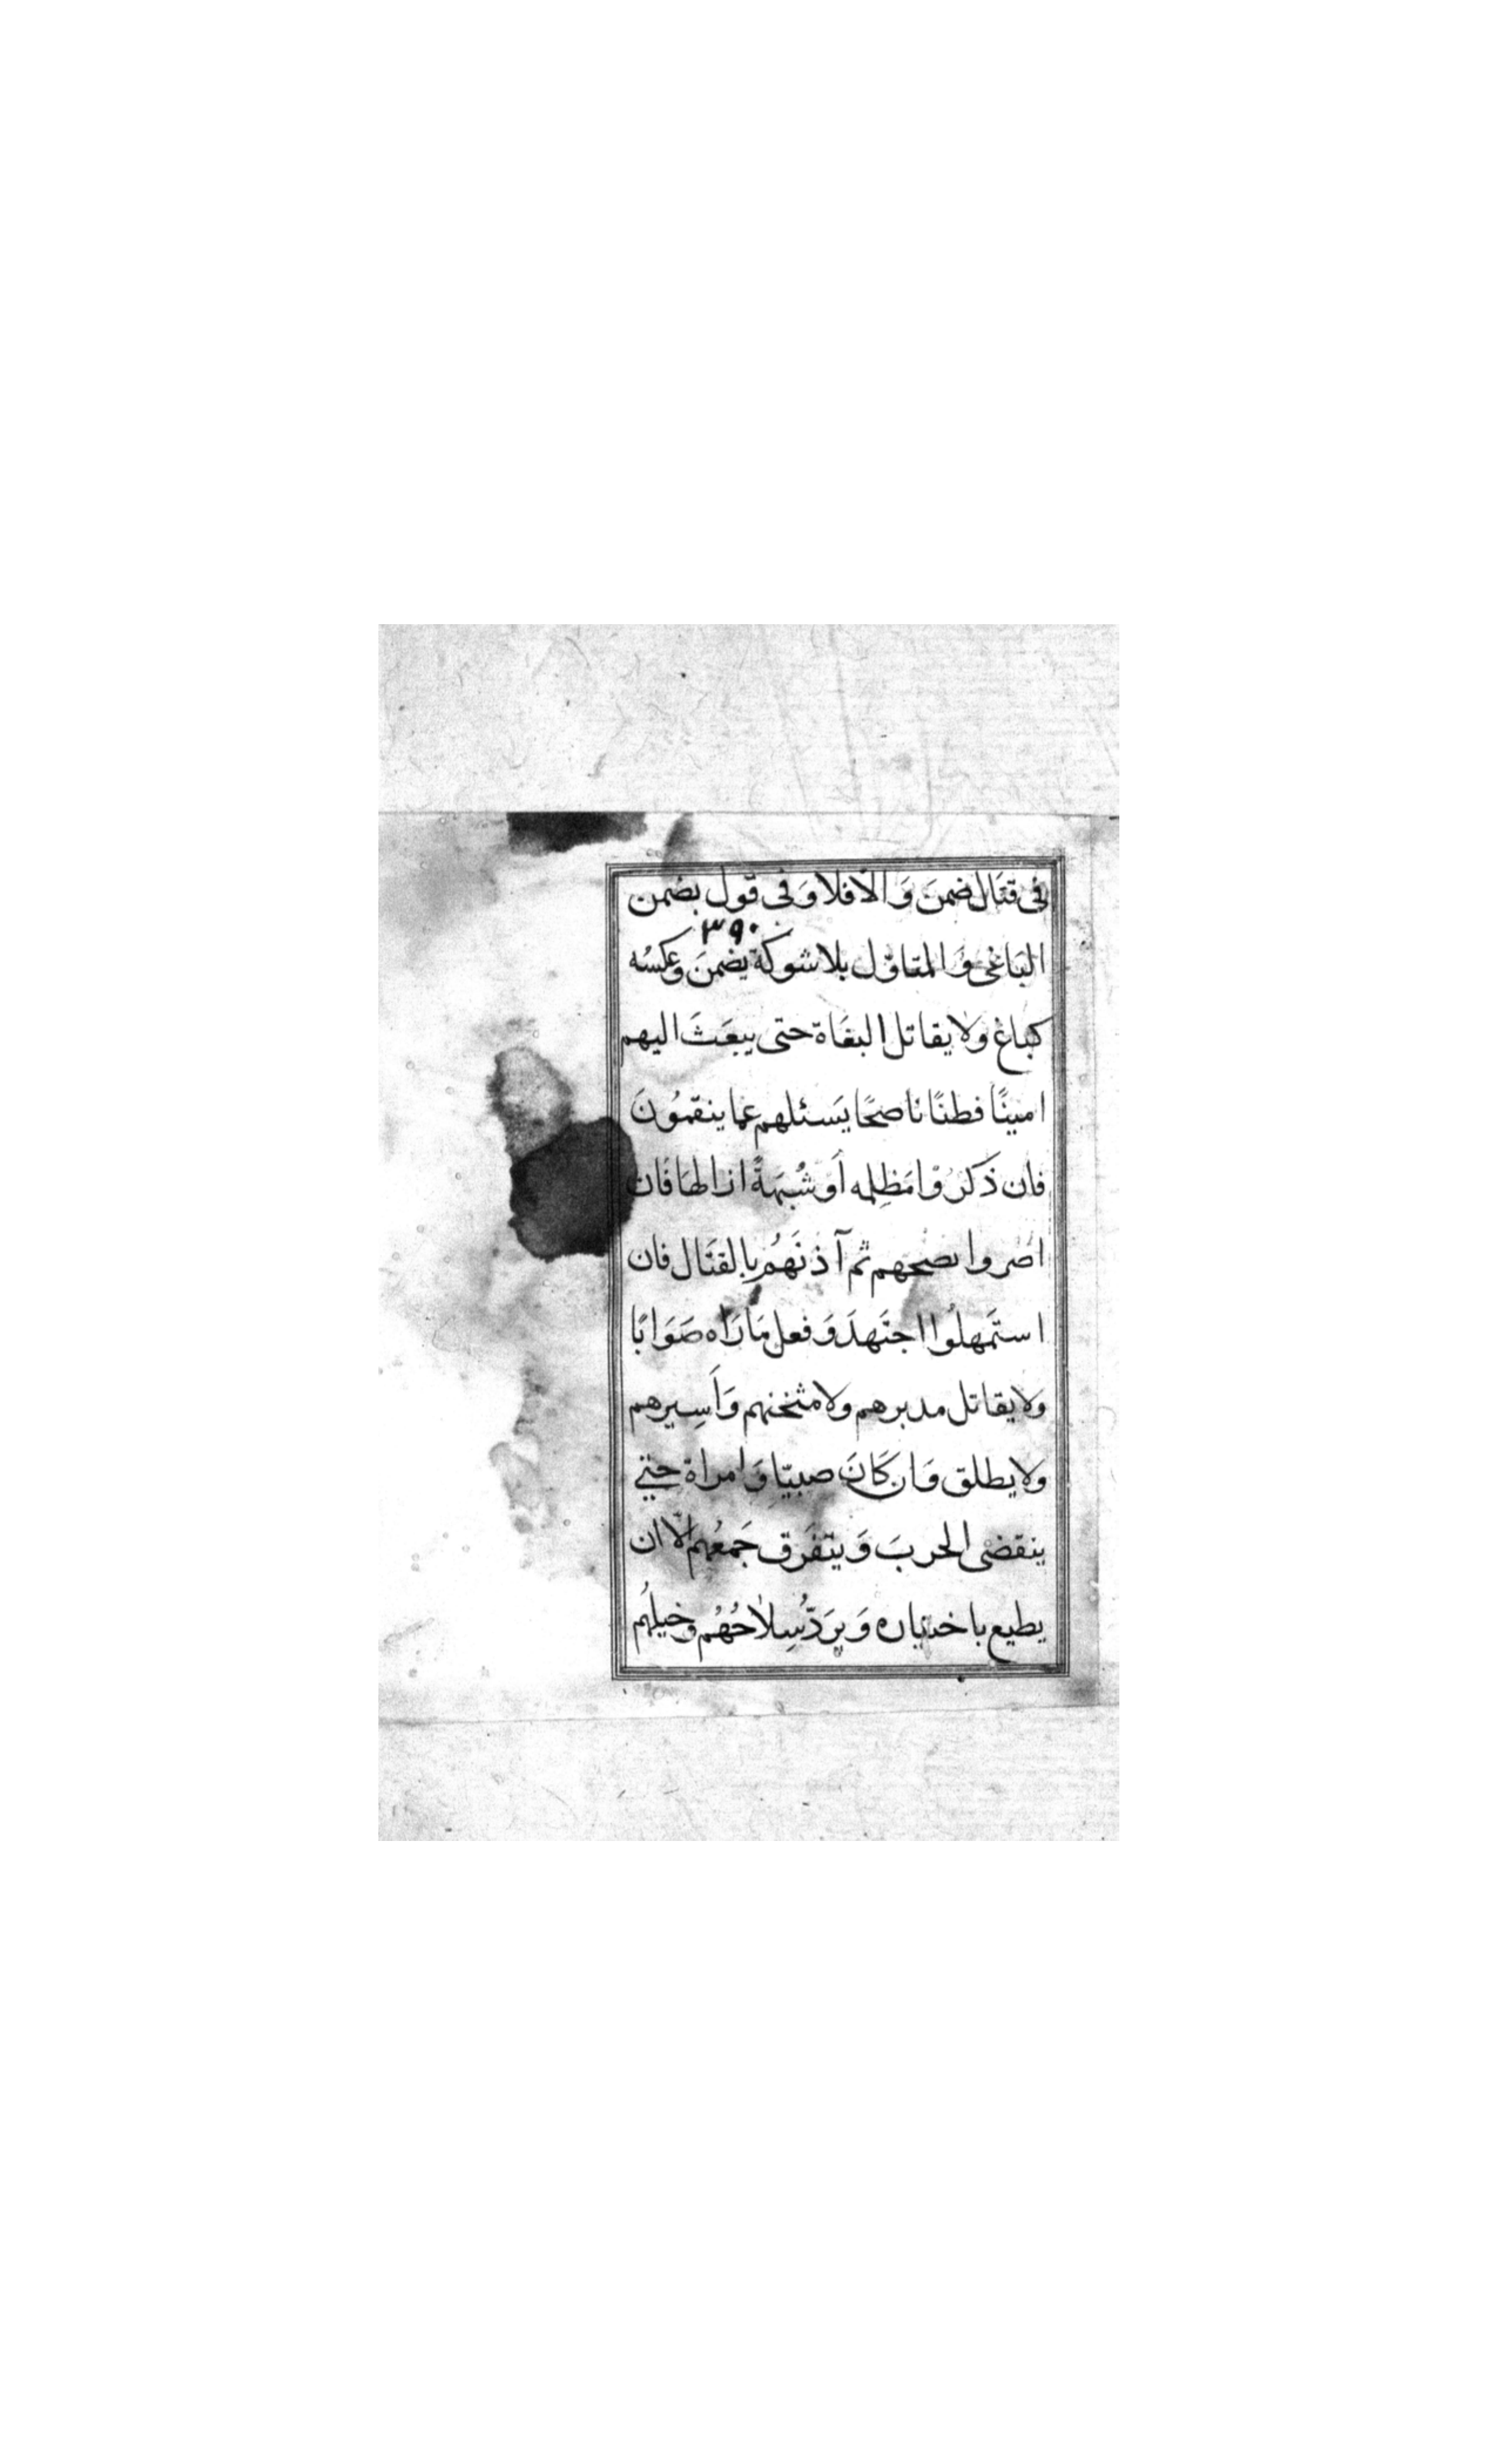 في قتَال ضمنَ وَالّا فلا وَفى قول يضمن
٣٩٠
البَاغى وَالمتاوّل بلا شوكة يضمنَ وَعكسُه
كباغ ولا يقاتل البغَاة حتى يبعَثَ اليهم
امينًا فطنًا ناصحًا يَسئلهم عما ينقمُونَ
فان ذكرُوا مَظلِمه اَو شُبهَةً ازالهَا فَان
اصروا نصحهم ثم آذنَهُم بالقتَال فان
استَمهلُوا اجتَهدَ وَفعل مَا رَاه صَوَابًا
ولا يقاتل مدبرهم ولا مثخنهم وَاَسِيرهم
ولا يطلق وَان كَانَ صبيّا وَامراة حتي
ينقضى الحربَ وَيتفَرق جَمعُهم الّا ان
يطيع باختياره وَيرَدّ سِلاحُهُم وخيلهُم